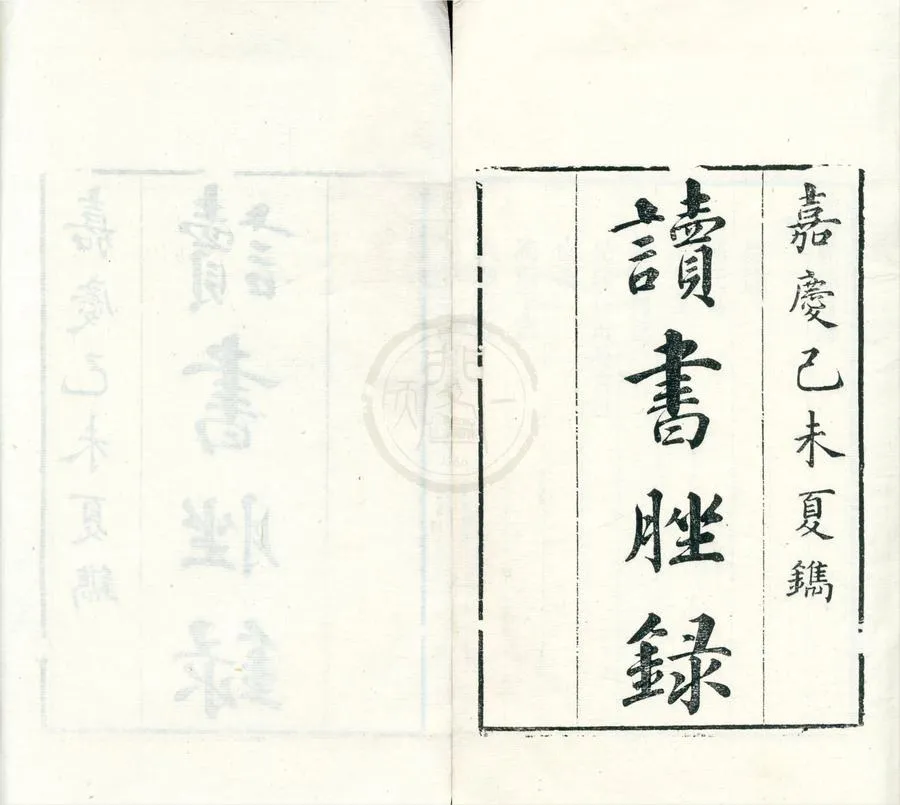 嘉慶己未夏鐫
讀書脞録